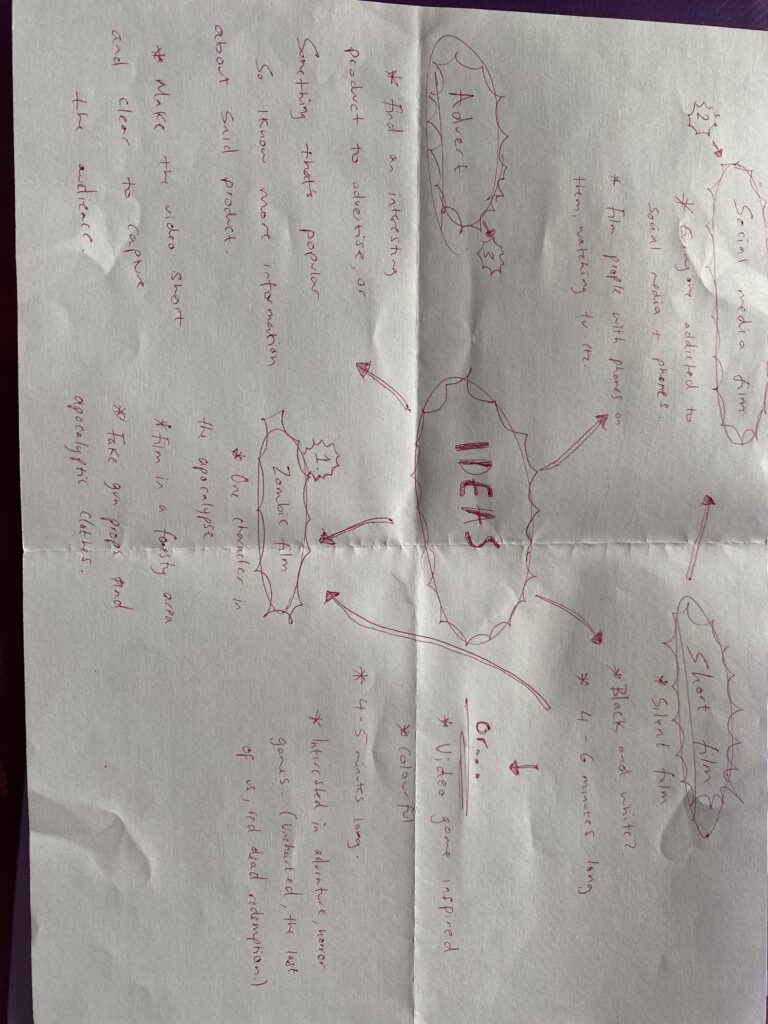 Social media film
2
* Everyone addicted to
social media + phones.
* Film people with phones on
them, watching tv etc
Short film
* Silent film
* Black and white?
* 4 - 6 minutes long
IDEAS
Advert
3
* Find an interesting
product to advertise, or
Something that's popular
So I know more information
about said product.
* Make the video short
and clear to capture
the audience.
Or...
* Video game inspired
* colourful
* 4 - 5 minutes long.
* Interested in adventure, horror
games. (Uncharted, the last
of us, red dead redemption.)
1.
Zombie film
* One character in
the apocalypse
* film in a foresty area
* Fake gun props and
apocalyptic clothes.